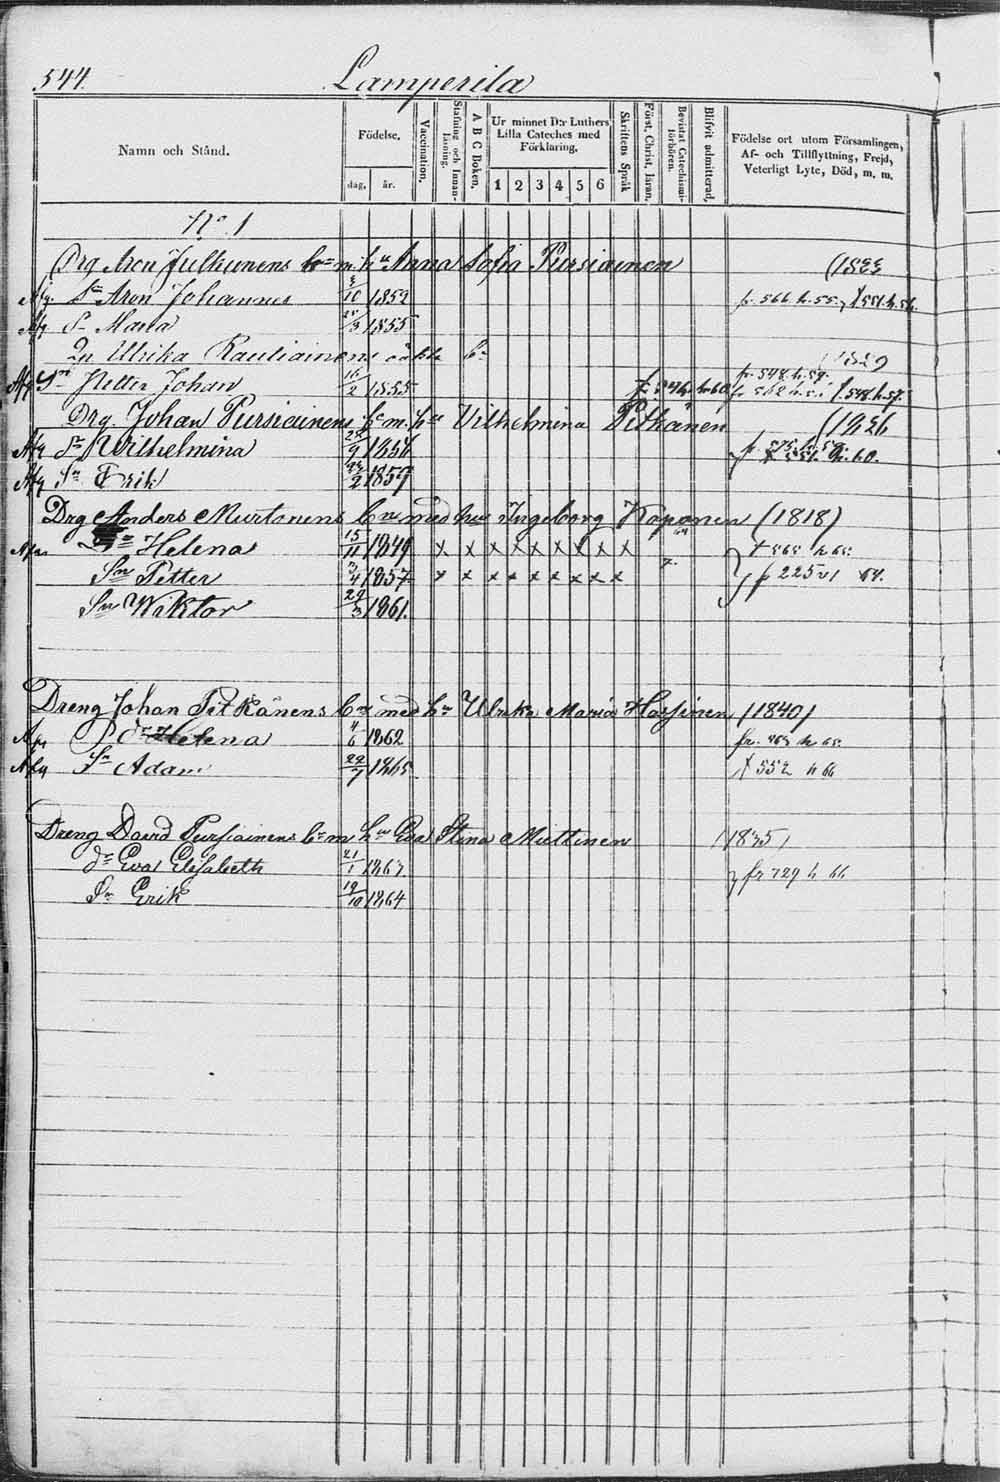 544. Lamperila
Namn och Stånd.
Födelse.
dag. år.
Vaccination.
Stafning och Innanläsning.
A B C Boken.
Ur minnet D:r Luthers Lilla Cateches med Förklaring.
1 2 3 4 5 6
Skriftens Språk
Först. Christ. läran.
Bevistat Catechismiförhören.
Blifvit admitterad.
Födelse ort utom Församlingen, Af- och Tillflyttning, Frejd, Veterligt Lyte, Död, m. m.
No 1
Drg Aron Julkunens m. hu Anna Sofia Pursiainen (1833
Afg. Sn Aron Johannes 10 1852 fr. 566 h. 55.
Afg Maria 3 1855
Ulrika Rautiainens oäkta 1829
Afg Sn Petter Johan 16/2 1855 fr. 548 h. 59.
Drg. Johan Pursiainens bn m. hu Vilhelmina Pitkänen (1836
Afg Wilhelmina 9 1856
Afg Sn Erik 2 1859
Drg Anders Murtonens bn med hus Ingeborg Koponen (1818)
Dr Helena 15/11 1849 x x x x x x x x x 565 h 65.
Sn Petter 3/4 1857 x x x x x x x x x fr 225
Sn Wiktor 29/3 1861.
Dreng Johan Pitkänens bn med hu Ulrika Maria Hassinen (1840)
dr Helena 4/6 1862
Afg Sn Adam 29/7 1865 552 h 66
Dreng David Pursiainens bn m hu Eva Stina Miettinen (1835)
dr Eva Elisabeth 21/1 1863 fr 729 h 66
Sn Erik 19/10 1864